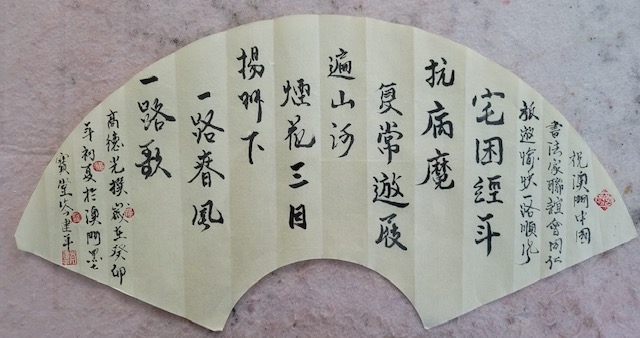 祝澳門中國
書法家聯誼會同仁
旅遊愉快一路順風
宅困經年
抗病魔
复常遊屐
遍山河
煙花三月
揚州下
一路春風
一路歌
高德光撰歲在癸卯
年初夏於澳門
寶堂